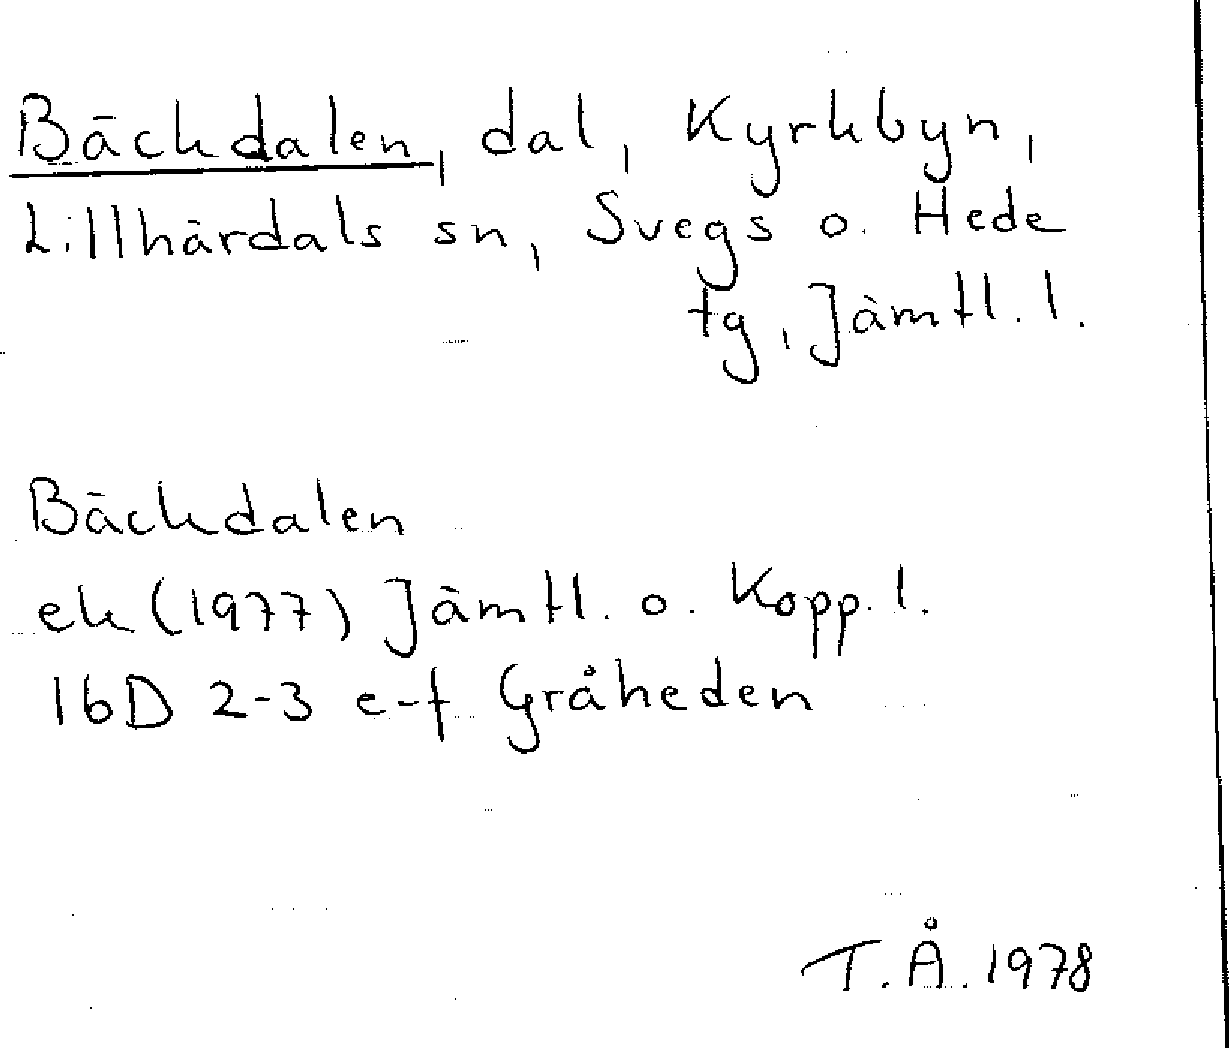 Bäckdalen, dal, Kyrkbyn,
Lillhärdals sn, Svegs o. Hede
tg, Jämtl. l.
Bäckdalen
ek (1977) Jämtl. o. Kopp. l.
16D 2-3 e-f Gråheden
T.Å. 1978